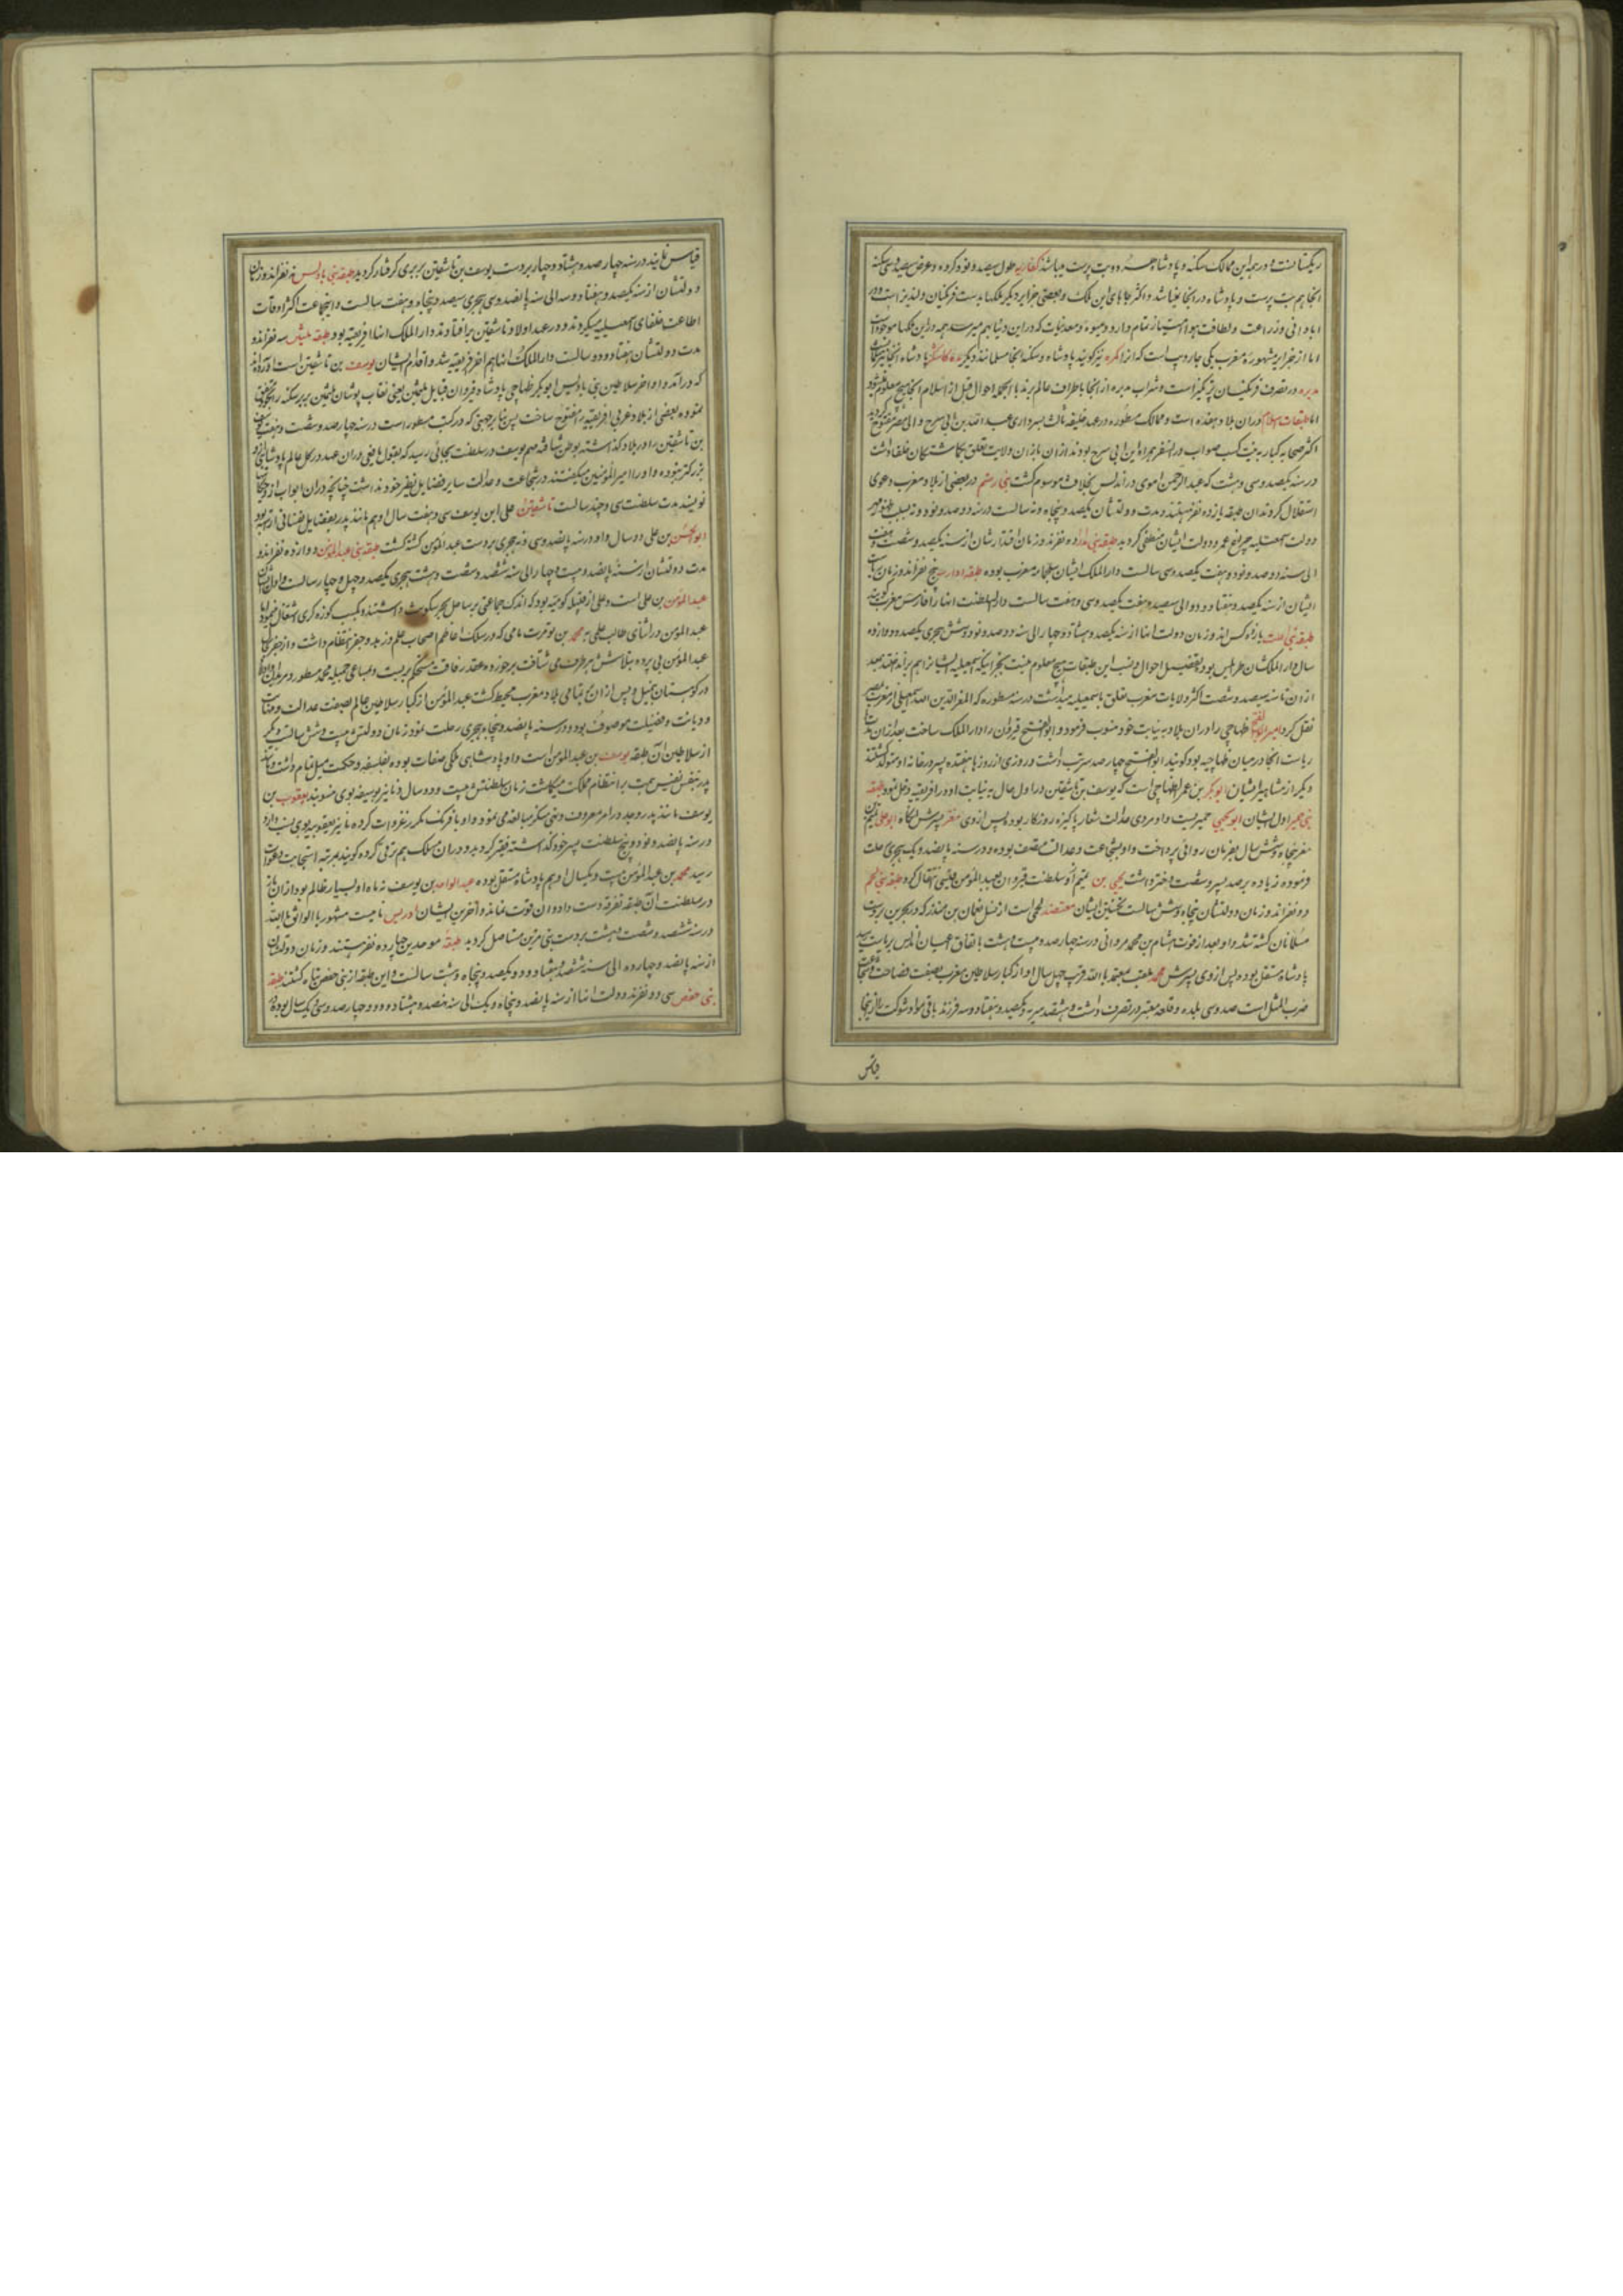 ریکستانست و در همه این ممالک سکنه و پادشاه همه بت پرست میباشند کفاریه طول سیصد و نود کروه و عرض سیصد و سی سکنه
انجا هم بت پرست و پادشاه در انجا نمیباشد و اکثر جاهای این ملک و بعضی جزایر دیگر ملکها بدست فرنگیان
ابادانی و زراعت و لطافت هوا امتیاز تمام دارد و میوه و معدنیات که در این دنیا بهم میرسد همه در این ملکها موجود است
اما از جزایر مشهوره مغرب یکی جاروب است که انرا نیز گویند پادشاه و سکنه انجا مسلمانند و دیگر پادشاه انجا نیز
در تصرف فرنگیان است و شراب مدیره از انجا باطراف عالم برند بالجمله احوال قبل از اسلام انجا هیچ معلوم نمیشود
اما طبقات اسلام دران بلاد هفده است و ممالک مسطوره در عهد خلیفه ثالث بسرداری عبد الله بن ابی سرح والی مصر مفتوح گردید
اکثر صحابه کبار به نیت کسب صواب در ان سفر همراه ابن ابی سرح بودند از ان باز ان ولایت تعلق بگماشتگان خلفا داشت
در سنه یکصد و سی و هشت که عبد الرحمن اموی در اندلس بخلافت موسوم گشت بنی رستم در بعضی از بلاد مغرب دعوی
استقلال کردند ان طبقه یازده نفر هستند و مدت دولتشان یکصد و پنجاه و نه سالست در سنه دوصد و نود و نه بسبب ظهور
دولت اسمعیلیه چراغ عمر و دولت ایشان منطفی گردید طبقه بنی مدرار ده نفرند و زمان اقتدارشان از سنه یکصد و شصت و هفت
الی سنه دوصد و نود و هفت یکصد و سی سالست دار الملک ایشان سلجماسه مغرب بوده طبقه ادارسه پنج نفراند و زمان
ایشان از سنه یکصد و هفتاد و دو الی سیصد و هفت یکصد و سی و هفت سالست دار السلطنت انها را فارس مغرب گویند
طبقه بنی اغلب یازده کس اند و زمان دولت انها از سنه یکصد و هشتاد و چهار الی سنه دوصد و نود و شش هجری یکصد و دوازده
سال دار الملکشان طرابلس بود و تفصیل احوال و نسب این طبقات هیچ معلوم نیست بجز اینکه اسمعیلیه ایشانرا هم برانداختند بعد
از ان تا سنه سیصد و شصت اکثر ولایات مغرب تعلق باسمعیلیه میداشت در سنه مسطوره که المعز لدین الله اسمعیلی از مغرب بمصر
نقل کرد امیر ابو الفتح ظهاجی را دران بلاد به نیابت خود منسوب فرمود و ابو الفتح قیروان را دار الملک ساخت بعد ازان
ریاست انجا در میان ظهاجیه بود گویند ابو الفتح چهارصد سرتب داشت و روزی از روزها هفده پسر در خانه او متولد گشتند
دیگر از مشاهیر ایشان ابو بکر بن عمر الظهاجی است که یوسف بن تاشقین در اول حال به نیابت او در افریقیه دخل نمود طبقه
بنی حمیر اول ایشان ابو یحیی حمیریست و او مردی عدالت شعار پاکیزه روزگار بود و پس از وی معز پسرش انگاه ابو علی تمیم بن
معز پنجاه و شش سال بفرمان روائی پرداخت و او بشجاعت و عدالت متصف بوده و در سنه پانصد و یک هجری رحلت
فرموده زیاده بر صد پسر و شصت دختر داشت یحیی بن تمیم از و سلطنت قیروان بعبد المومن قیسی انتقال کرد طبقه بنی لخم
دو نفراند و زمان دولتشان پنجاه و شش سالست نخستین ایشان معتضد لخمی است از نسل نعمان بن منذر که در بحرین بدست
مسلمانان کشته شد و او بعد از فوت هشام بن محمد مروانی در سنه چهارصد و بیست و هشت باتفاق اعیان اندلس بریاست رسید
پادشاه مستقل بود و پس از وی پسرش محمد ملقب بمعتمد بالله قریب چهل سال او از کبار سلاطین مغرب بصفت فصاحت و شجاعت
ضرب المثل است صد و سی بلده و قلعه معتبر در تصرف داشت و هشتصد سریه و یکصد و هفتاد و سه فرزند باقی مواد شوکت را از اینجا
قیاس
قیاس نمایند در سنه چهارصد و هشتاد و چهار بر دست یوسف بن تاشقین بربری گرفتار گردید طبقه بنی بادیس نه نفراند و زمان
دولتشان از سنه یکصد و هفتاد و سه الی سنه پانصد و سی هجری سیصد و پنجاه و هفت سالست و اینجماعت اکثر اوقات
اطاعت خلفای اسمعیلیه میکردند و در عهد اولاد تاشقین برافتادند دار الملک انها افریقیه بود طبقه ملثمین سه نفراند و
مدت دولتشان هفتاد و دو سالست دار الملک انها هم اخر افریقیه شد و اقدام ایشان یوسف بن تاشقین است
که درامد و اواخر سلاطین بنی بادیس ابو بکر ظهاجی پادشاه قیروان قبایل ملثمین یعنی نقاب پوشان ملثمین بربر سکنه
نموده بعضی از بلاد غربی افریقیه را مفتوح ساخت پس بنا بر جهتی که در کتب مسطور است در سنه چهارصد و شصت و هفت یوسف
بن تاشقین را در بلاد گذاشته بوطن شتافته مهم یوسف در سلطنت بجائی رسید که بقول یافعی دران عهد در کل عالم پادشاهی از او
بزرگتر نبوده و او را امیر المؤمنین میگفتند در شجاعت و عدالت و سایر فضایل نظیر خود نداشت چنانچه دران ابواب ازو حکایات
نویسند مدت سلطنت سی و چند سالست تاشقین علی ابن یوسف سی و هفت سال او هم مانند پدر بفضایل نفسانی اراسته بود
ابو الحسن بن علی دو سال و او در سنه پانصد و سی و نه هجری بر دست عبد المومن کشته گشت طبقه بنی عبد المومن دوازده نفراند و
مدت دولتشان از سنه پانصد و بیست و چهار الی سنه ششصد و شصت و هشت هجری یکصد و چهل و چهار سالست و اول ایشان
عبد المومن بن علی است و علی از قبیله کومیه بود که اندک جماعتی بر ساحل بحر سکونت داشتند و بکسب کوزه گری اشتغال مینمود اما
عبد المومن در اثنای طالب علمی به محمد بن تومرت نامی که در سلک اعاظم اصحاب علم و زهد و جفر انتظام داشت و از جفر
عبد المومن پی برده بتلاشش هر طرف می شتافت برخورده عقد رفاقت مستحکم بربست و بمساعی جمیله محمد مسطور و مریدان او
در کوهستان جبیل و پس از ان بتمامی بلاد مغرب محیط گشت عبد المومن از کبار سلاطین عالم بصفت عدالت و مهابت
و دیانت و فضیلت موصوف بود و در سنه پانصد و پنجاه هجری رحلت نمود زمان دولتش بیست و شش سالست و دیگر
از سلاطین ان طبقه یوسف بن عبد المومن است و او پادشاهی ملکی صفات بوده بفلسفه و حکمت میل تمام داشت و مانند
پدر بنفس نفیس همت بر انتظام مملکت میگماشت زمان سلطنتش بیست و دو سال دنانیر یوسفیه بوی منسوبند یعقوب بن
یوسف مانند پدر و جد در امر معروف و نهی منکر مبالغه می نمود و او با فرنگ مکرر غزوات کرده دنانیر یعقوبیه بوی نسبت دارد
در سنه پانصد و نود و پنج سلطنت پسر خود گذاشته فقیر گردید و دران مسلک هم ترقی کرده گویند بمرتبه استجابت دعوات
رسید محمد بن عبد المومن بیست و یکسال او هم پادشاه مستقل بوده عبد الواحد بن یوسف نه ماه او بسیار ظالم بود از ان باز
در سلطنت ان طبقه تفرقه دست داد و ان قوت نماند و اخرین ایشان ادریس نامیست مشهور بالواثق بالله
در سنه ششصد و شصت و هشت بر دست بنی مرین مستاصل گردید طبقه موحدین چهارده نفر هستند و زمان دولتشان
از سنه پانصد و چهارده الی سنه ششصد و هفتاد و دو یکصد و پنجاه و هشت سالست و این طبقه از بنی حفص تباه گشتند طبقه
بنی حفص سی و دو نفرند دولت انها از سنه پانصد و پنجاه و یک الی سنه نهصد و هشتاد و دو چهارصد و سی و یک سال بوده